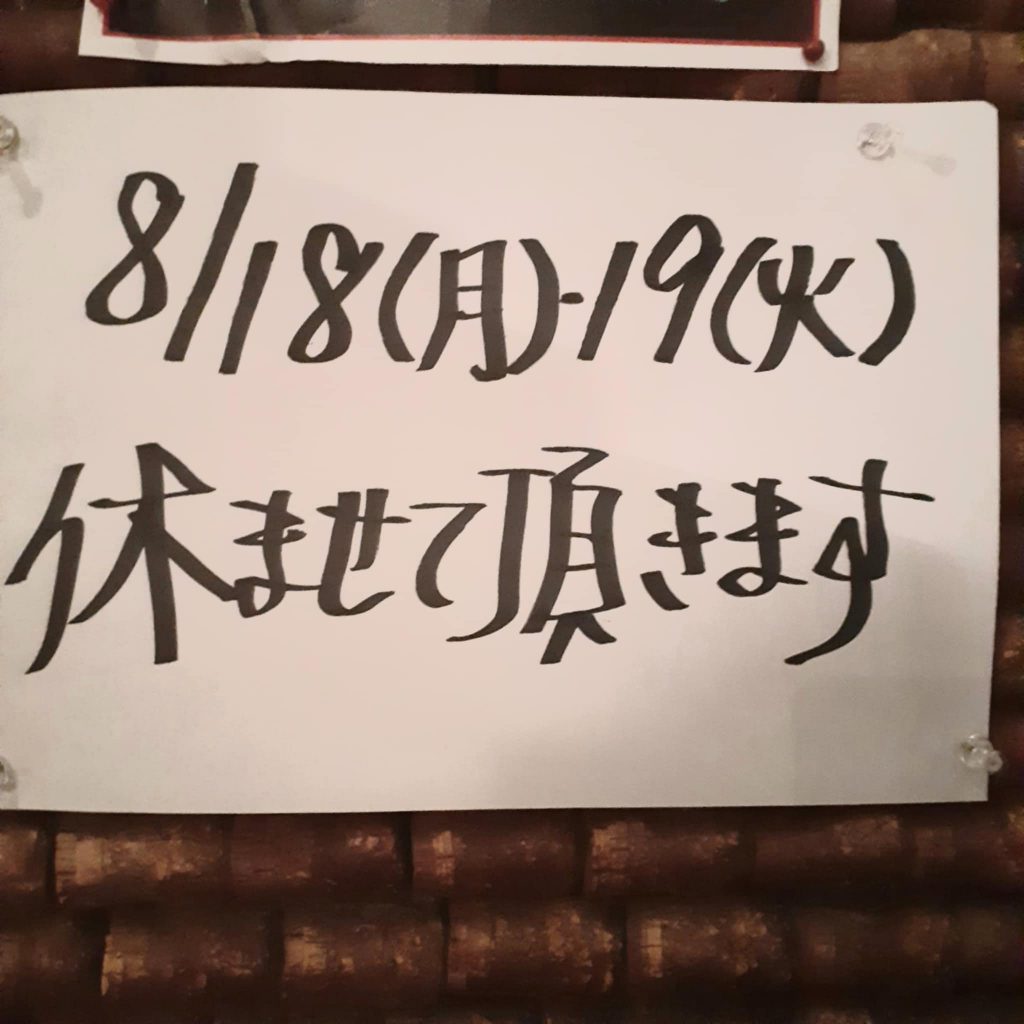 8/18(月)・19(火)
休ませて頂きます